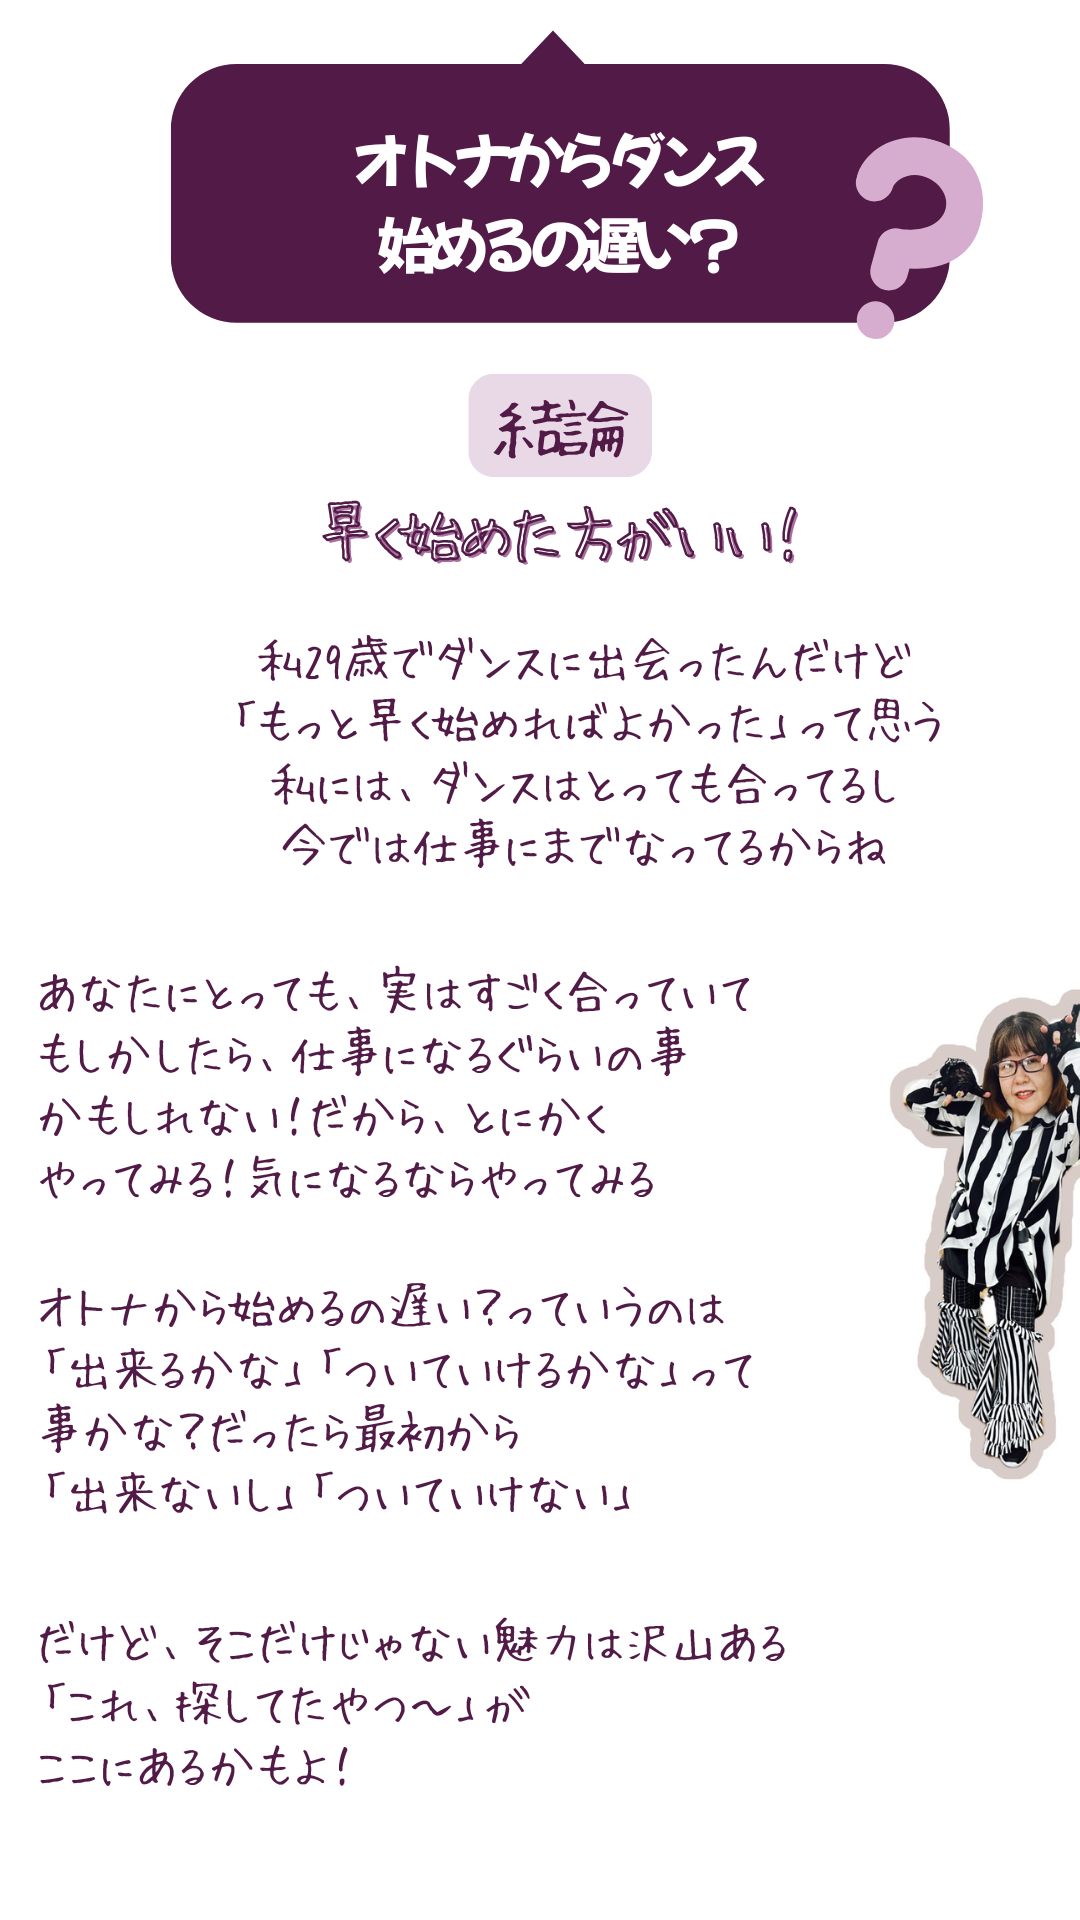 オトナからダンス
始めるの遅い？
結論
早く始めた方がいい！
私29歳でダンスに出会ったんだけど
「もっと早く始めればよかった」って思う
私には、ダンスはとっても合ってるし
今では仕事にまでなってるからね
あなたにとっても、実はすごく合っていて
もしかしたら、仕事になるぐらいの事
かもしれない！だから、とにかく
やってみる！気になるならやってみる
オトナから始めるの遅い？っていうのは
「出来るかな」「ついていけるかな」って
事かな？だったら最初から
「出来ないし」「ついていけない」
だけど、そこだけじゃない魅力は沢山ある
「これ、探してたやつ〜」が
ここにあるかもよ！